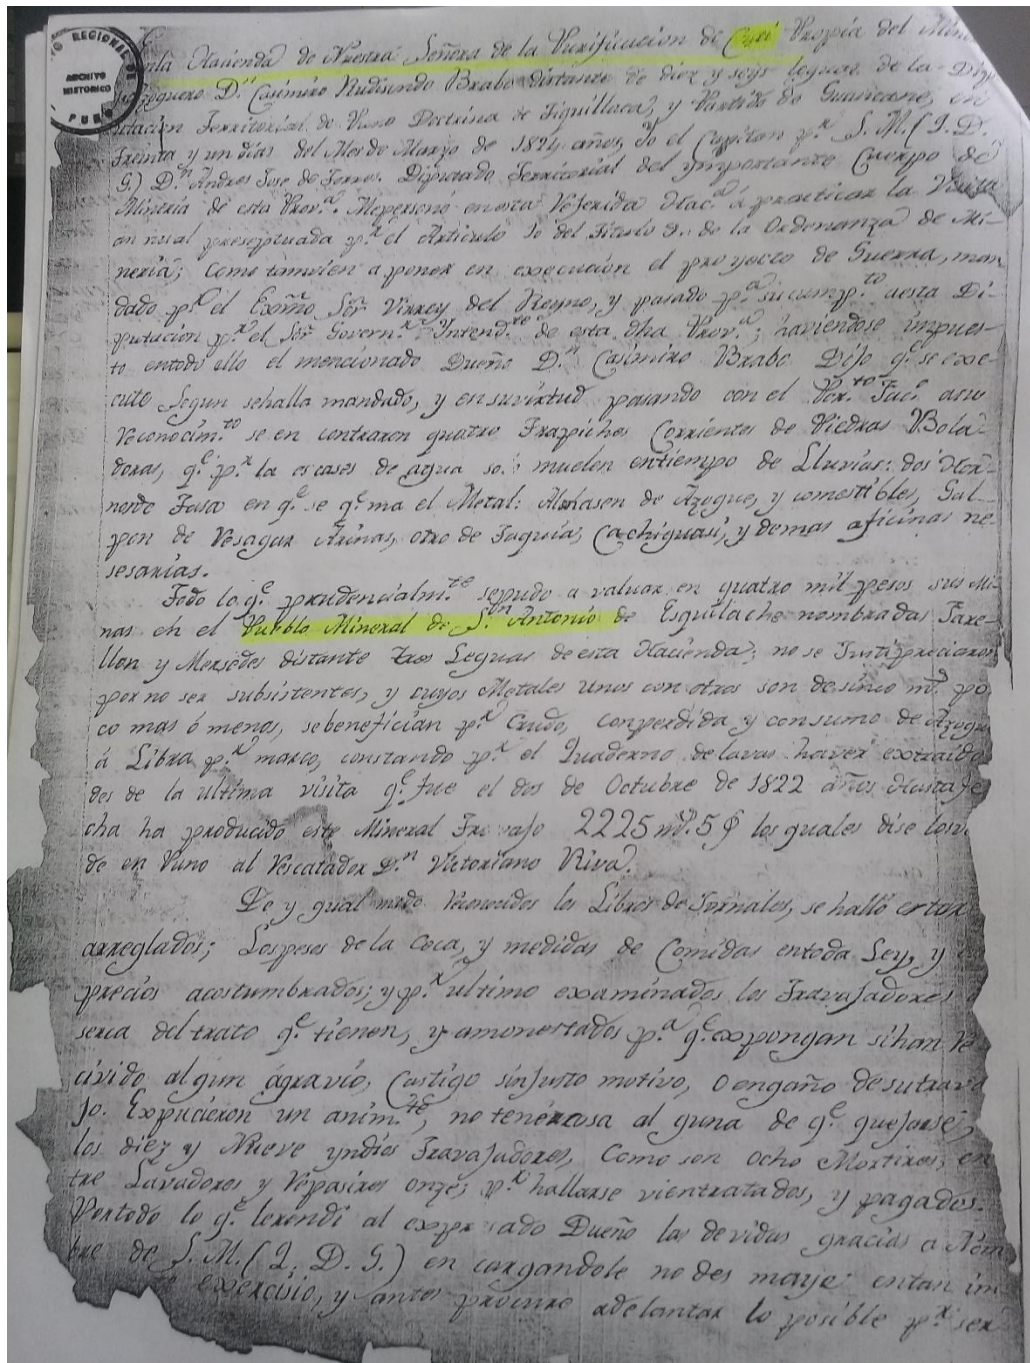 REGIONAL DE
ARCHIVO
HISTORICO
PUNO
nla Hacienda de Nuestra Señora de la Purificacion de Cupi Propia del Mine
Azoguero D.n Casimiro Rudisindo Brabo distante de diez y seys leguas de la Dip
utacion Territorial de Puno Doctrina de Tiquillaca, y Partido de Guancane, en
treinta y un dias del Mes de Marzo de 1824 años, Yo el Capitan p.r S. M. (Q. D.
G.) D.n Andres Jose de Torres. Diputado Territorial del Ymportante Cuerpo de
Mineria de esta Prov.a Mepersoné en esta Referida Hac.a á practicar la Visita
annual preseptuada p.r el Articulo 10 del Titulo 9. de la Ordenanza de Mi-
neria; como tamvien a poner en execucion el proyecto de Guerra, man
dado p.r el Exmo Sõr Virrey del Reyno, y pasado p.a su cump.to aesta Di-
putacion p.r el Sõr Govern.r Yntend.te de esta dha Prov.a; haviendose impues-
to entodo ello el mencionado Dueño D.n Casimiro Brabo Dijo q.e se exe-
cute segun sehalla mandado, y ensuvirtud pasando con el Per.to Fac.e asu
Reconocim.to se en contraron quatro Trapiches Corrientes de Piedras Bola-
doras, q.e p.r la escases de agua solo muelen entiempo de Lluvias: dos Hor-
nosde Tosa en q.e se q.e ma el Metal: Almasen de Azogue, y comestibles, Gal-
pon de Resagar Arinas, otro de Taquia, Cachiguasi, y demas oficinas ne-
sesarias.
Todo lo q.e prudencialm.te sepudo a valuar en quatro mil pesos sus Mi-
nas en el Pueblo Mineral de S.n Antonio de Esquilache nombradas Fare-
llon y Mersedes distante tres Leguas de esta Hacienda; no se Justipreciaron
por no ser subsistentes, y cuyos Metales unos con otros son de sinco m.s po
co mas ó menos, sebenefician p.r Crudo, conperdida y consumo de Azogue
á Libra p.r marco, constando p.r el Quaderno de lavas haver extraido
des de la ultima visita q.e fue el dos de Octubre de 1822 años Hasta fe
cha ha producido este Mineral Travajo 2225 m.s 5 los quales dise los
de en Puno al Rescatador D.n Victoriano Riva.
De y gual modo Reconosidos los Libros de Jornales, se halló estar
arreglados; Lospesos de la Coca, y medidas de Comidas entoda Ley, y
precios acostumbrados; y p.r ultimo examinados los Travajadores
serca del trato q.e tienen, y amonestados p.a q.e expongan sihan Re
civido algun agravio, Castigo sinjusto motivo, o engaño de su trava
jo. Expucieron un anim.te, no tenercosa al guna de q.e quejarse,
los diez y Nueve yndios Travajadores, Como son Ocho Mortiros, en
tre Lavadores y Repasires onze; p.r hallarse vientratados, y pagados.
Portodo lo q.e lexendi al expresado Dueño las devidas gracias a Nom
bre de S. M. (Q. D. G.) en cargandole no des maye entan im
exercisio, y antes procure adelantar lo posible p.r ser